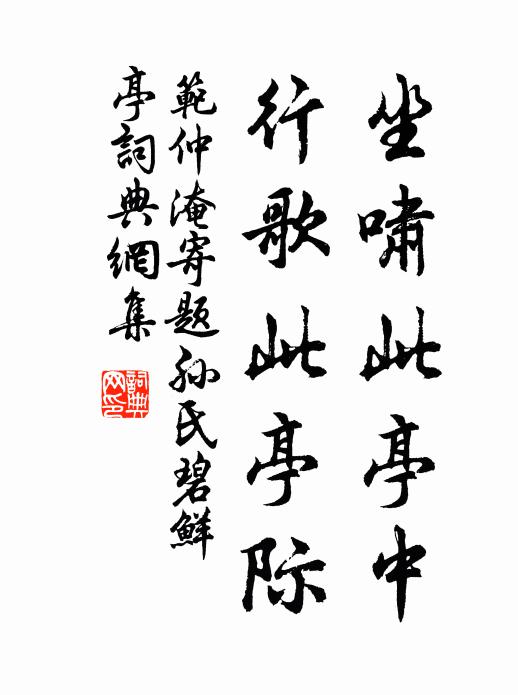 坐嘯此亭中
行歌此亭际
範仲淹寄題孙氏碧鮮
亭詞典網集
詞典
网印